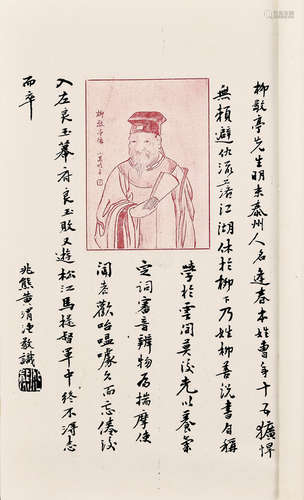 柳敬亭先生明末泰州人名逢春本姓曹年十五獷悍
無賴避仇流落江湖休於柳下乃姓柳善說書自稱
學於雲間莫後光以養氣
定詞審音辨物為揣摩使
聞者歡咍嗢噱久而忘倦後
入左良玉幕府良玉敗又遊松江馬提督軍中終不得志
而卒
兆熊黃渭漁敬識
柳敬亭像